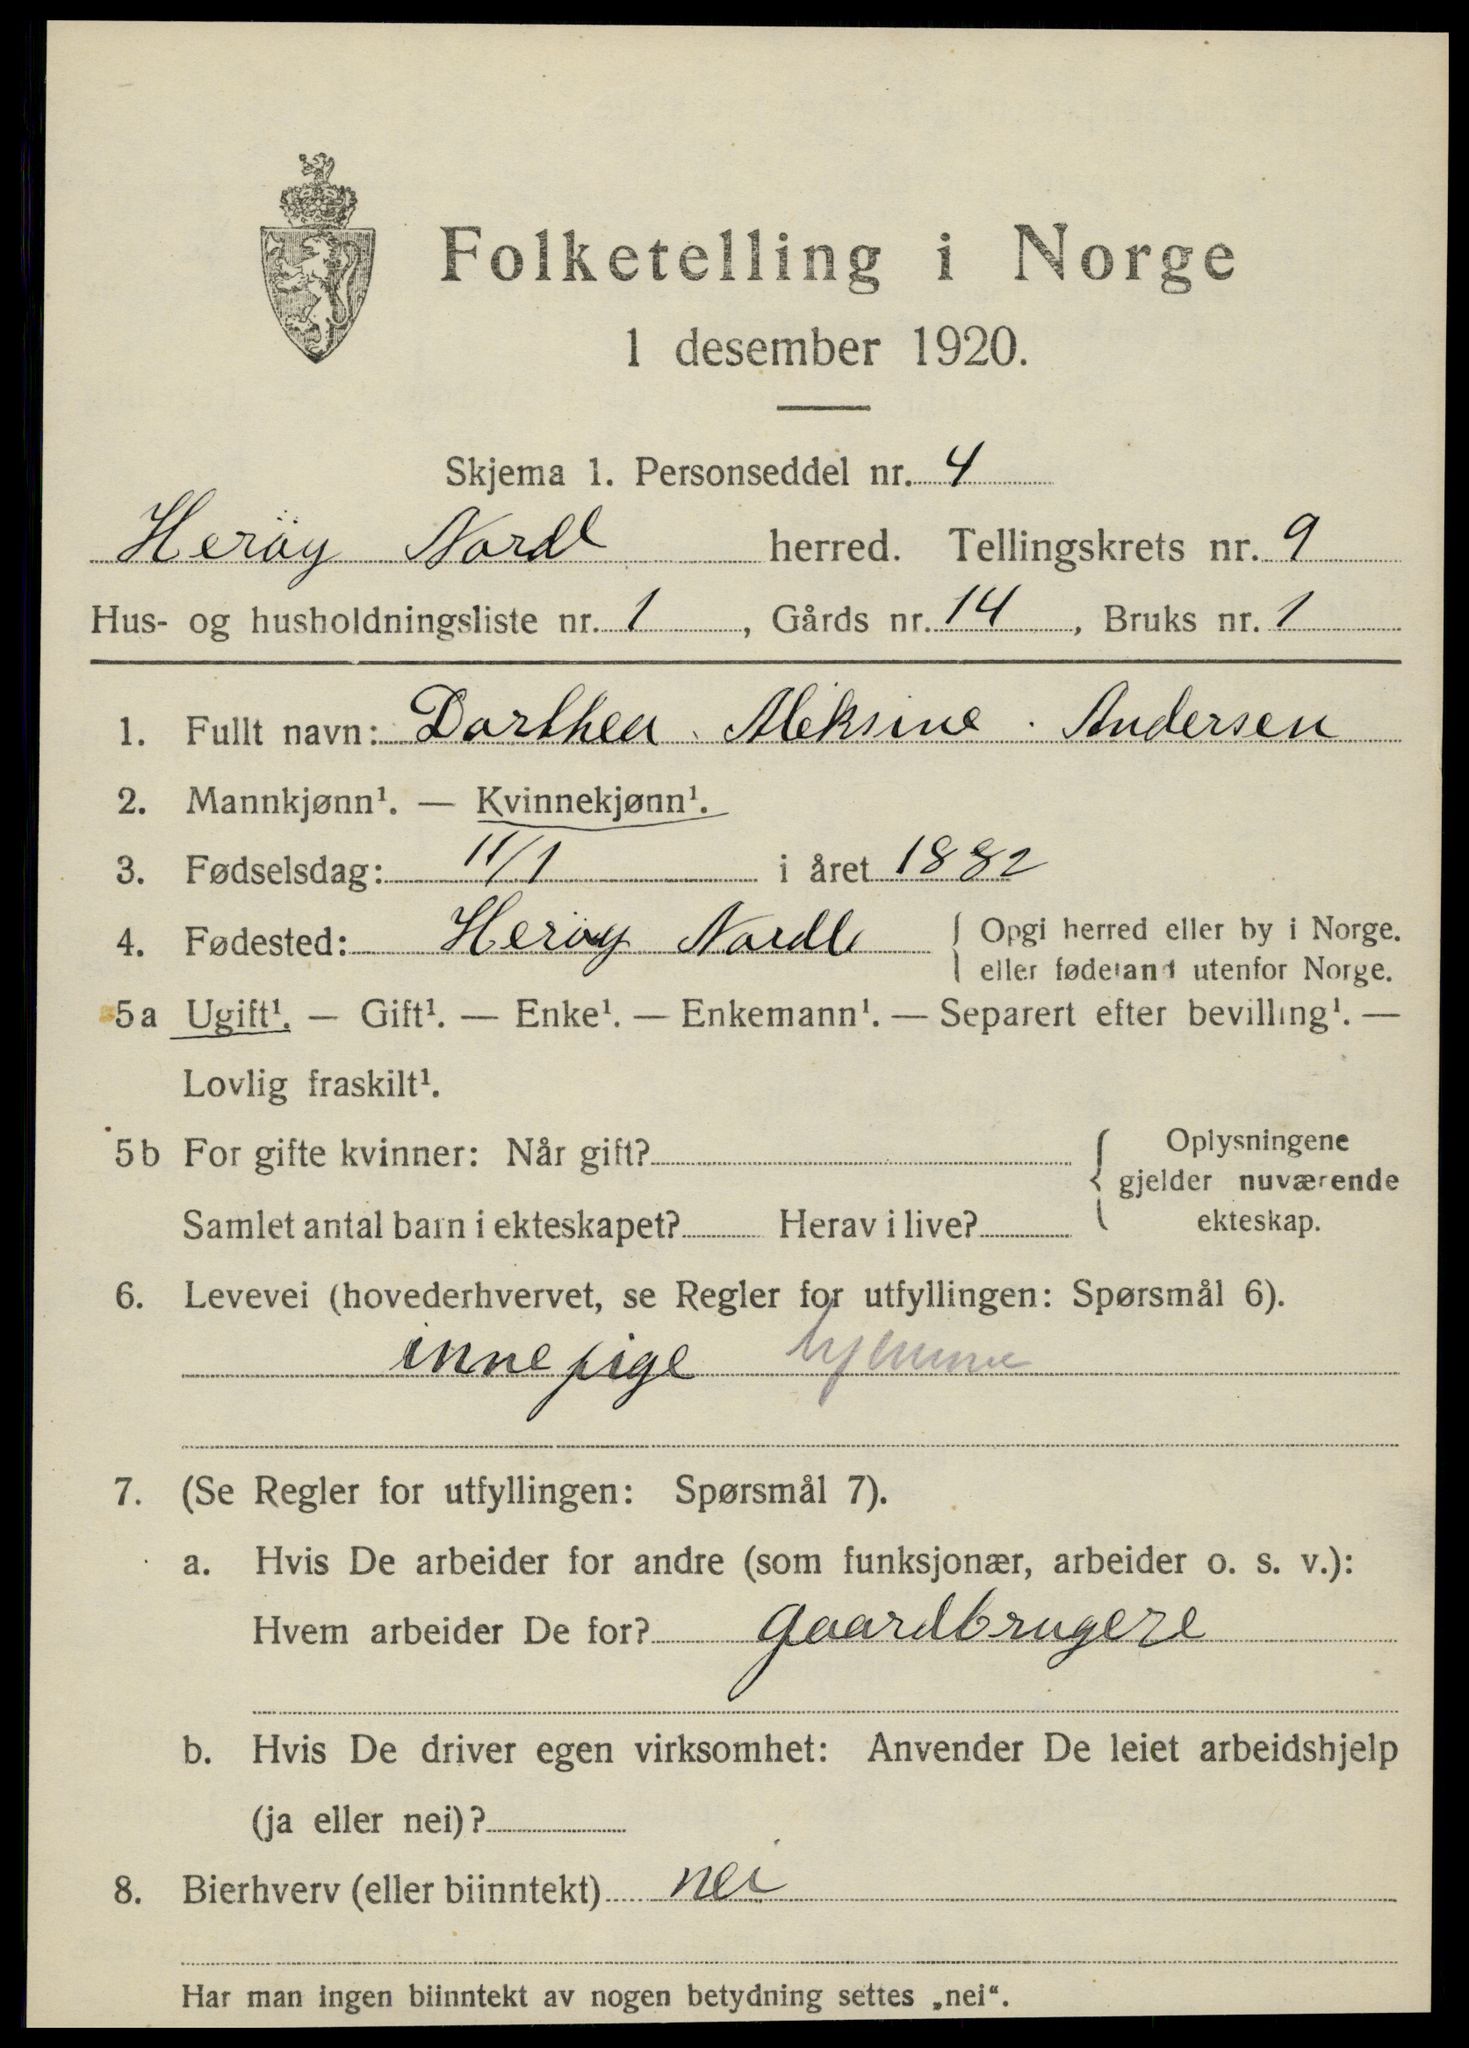 Folketelling i Norge
1 desember 1920.
Skjema 1. Personseddel nr. 4
Herøy Nordl herred. Tellingskrets nr. 9
Hus- og husholdningsliste nr. 1, Gårds nr. 14, Bruks nr. 1
1. Fullt navn: Dorthea Aleksine Andersen
2. Mannkjønn¹. — Kvinnekjønn¹.
3. Fødselsdag: 11/1 i året 1882
4. Fødested: Herøy Nordl { Opgi herred eller by i Norge.
eller fødeland utenfor Norge.
5a Ugift¹. — Gift¹. — Enke¹. — Enkemann¹. — Separert efter bevilling¹. —
Lovlig fraskilt¹.
5b For gifte kvinner: Når gift? { Oplysningene
gjelder nuværende
Samlet antal barn i ekteskapet? Herav i live? ekteskap.
6. Levevei (hovederhvervet, se Regler for utfyllingen: Spørsmål 6).
innepige hjemme
7. (Se Regler for utfyllingen: Spørsmål 7).
a. Hvis De arbeider for andre (som funksjonær, arbeider o. s. v.):
Hvem arbeider De for? gaardbrugere
b. Hvis De driver egen virksomhet: Anvender De leiet arbeidshjelp
(ja eller nei)?
8. Bierhverv (eller biinntekt) nei
Har man ingen biinntekt av nogen betydning settes „nei“.